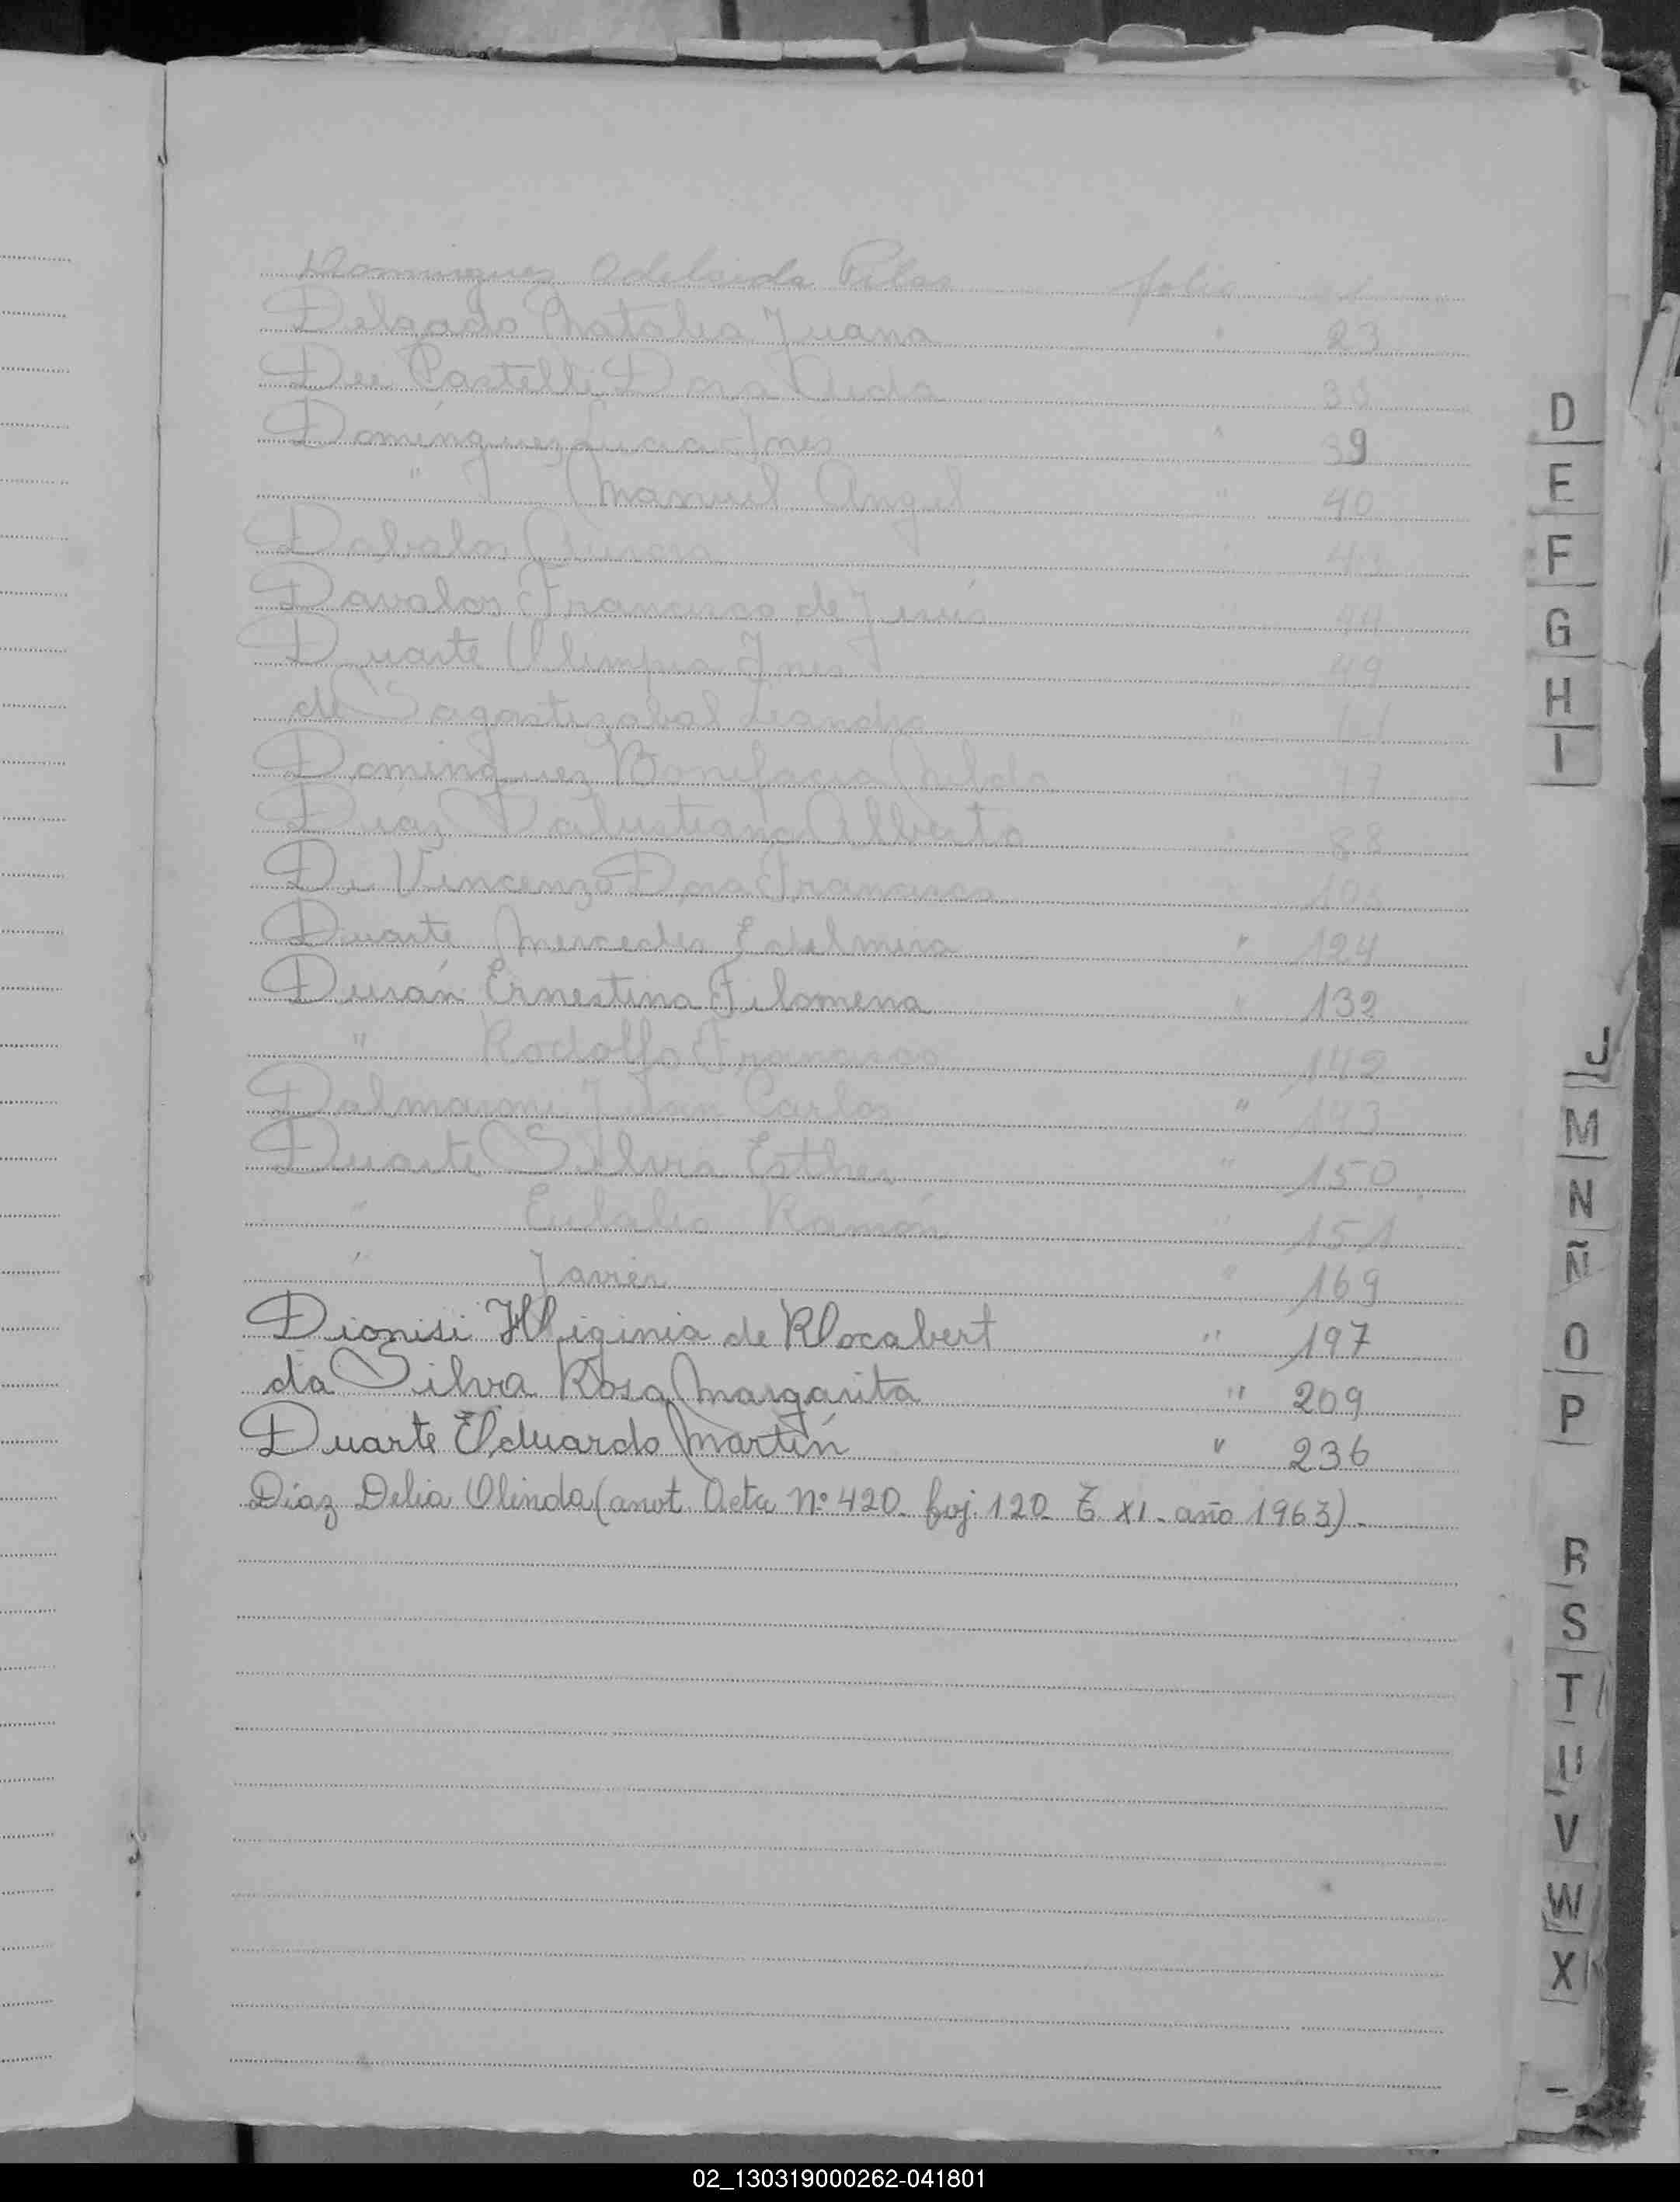 Dominguez Adelaida Pilar folio
Delgado Natalia Juana " 23
Dora Aida
Dominguez Lucia Ines " 39
" Manuel Angel " 40
Dabalos Aurora
Davalos Francisco de Jesús 44
Duarte Olimpia Ines 49
de Sagastizabal
Dominguez Bonifacia Nelda 77
Diaz Alberto 88
De Vincenzo Dora Francisca
Duarte Mercedes Edelmira " 124
Durán Ernestina Filomena " 132
" Rodolfo Francisco 142
Dalmasone Juan Carlos " 143
Duarte Silvia Esther " 150
" Eulalio Ramón " 151
" Javier " 169
Dionisi Higinia de Rocabert " 197
da Silva Rosa Margarita " 209
Duarte Eduardo Martín " 236
Díaz Delia Olinda (anot. Acta Nº 420 foj. 120 T XI - año 1963) -
D
E
F
G
H
I
J
M
N
Ñ
O
P
R
S
T
U
V
W
X
02_130319000262-041801